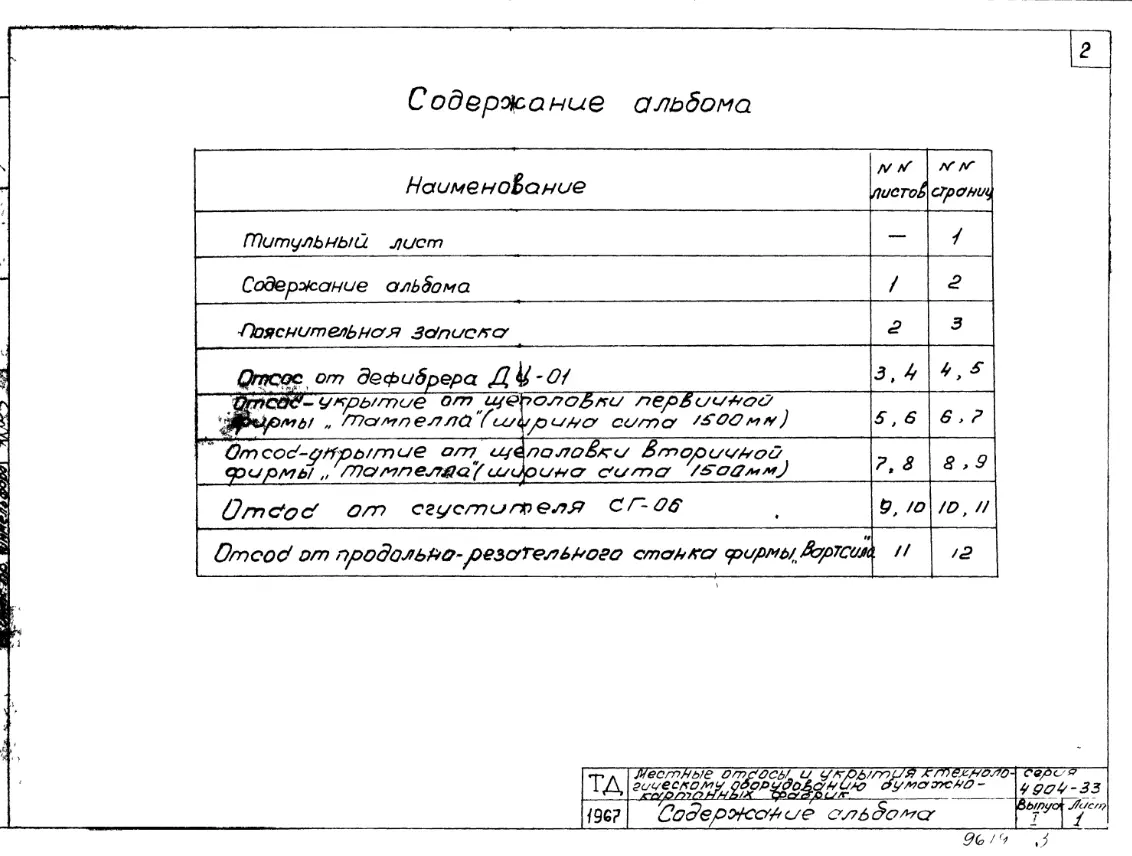 2
Содержание альбома
Наименование
N N листов
N N страниц
Титульный лист — 1
Содержание альбома 1 2
Пояснительная записка 2 3
Отсос от дефибрера ДЦ-01 3,4 4,5
Отсос-укрытие от щеполовки первичной
фирмы „Тампелла" (ширина сита 1500мм) 5,6 6,7
Отсос-укрытие от щеполовки вторичной
фирмы „Тампелла" (ширина сита 1500мм) 7,8 8,9
Отсос от сгустителя СГ-06 9,10 10,11
Отсос от продольно-резательного станка фирмы „Вартсила" 11 12
ТД
1967
Местные отсосы и укрытия к техноло-
гическому оборудованию бумажно-
картонных фабрик
Содержание альбома
серия
4904-33
Выпуск I
Лист 1